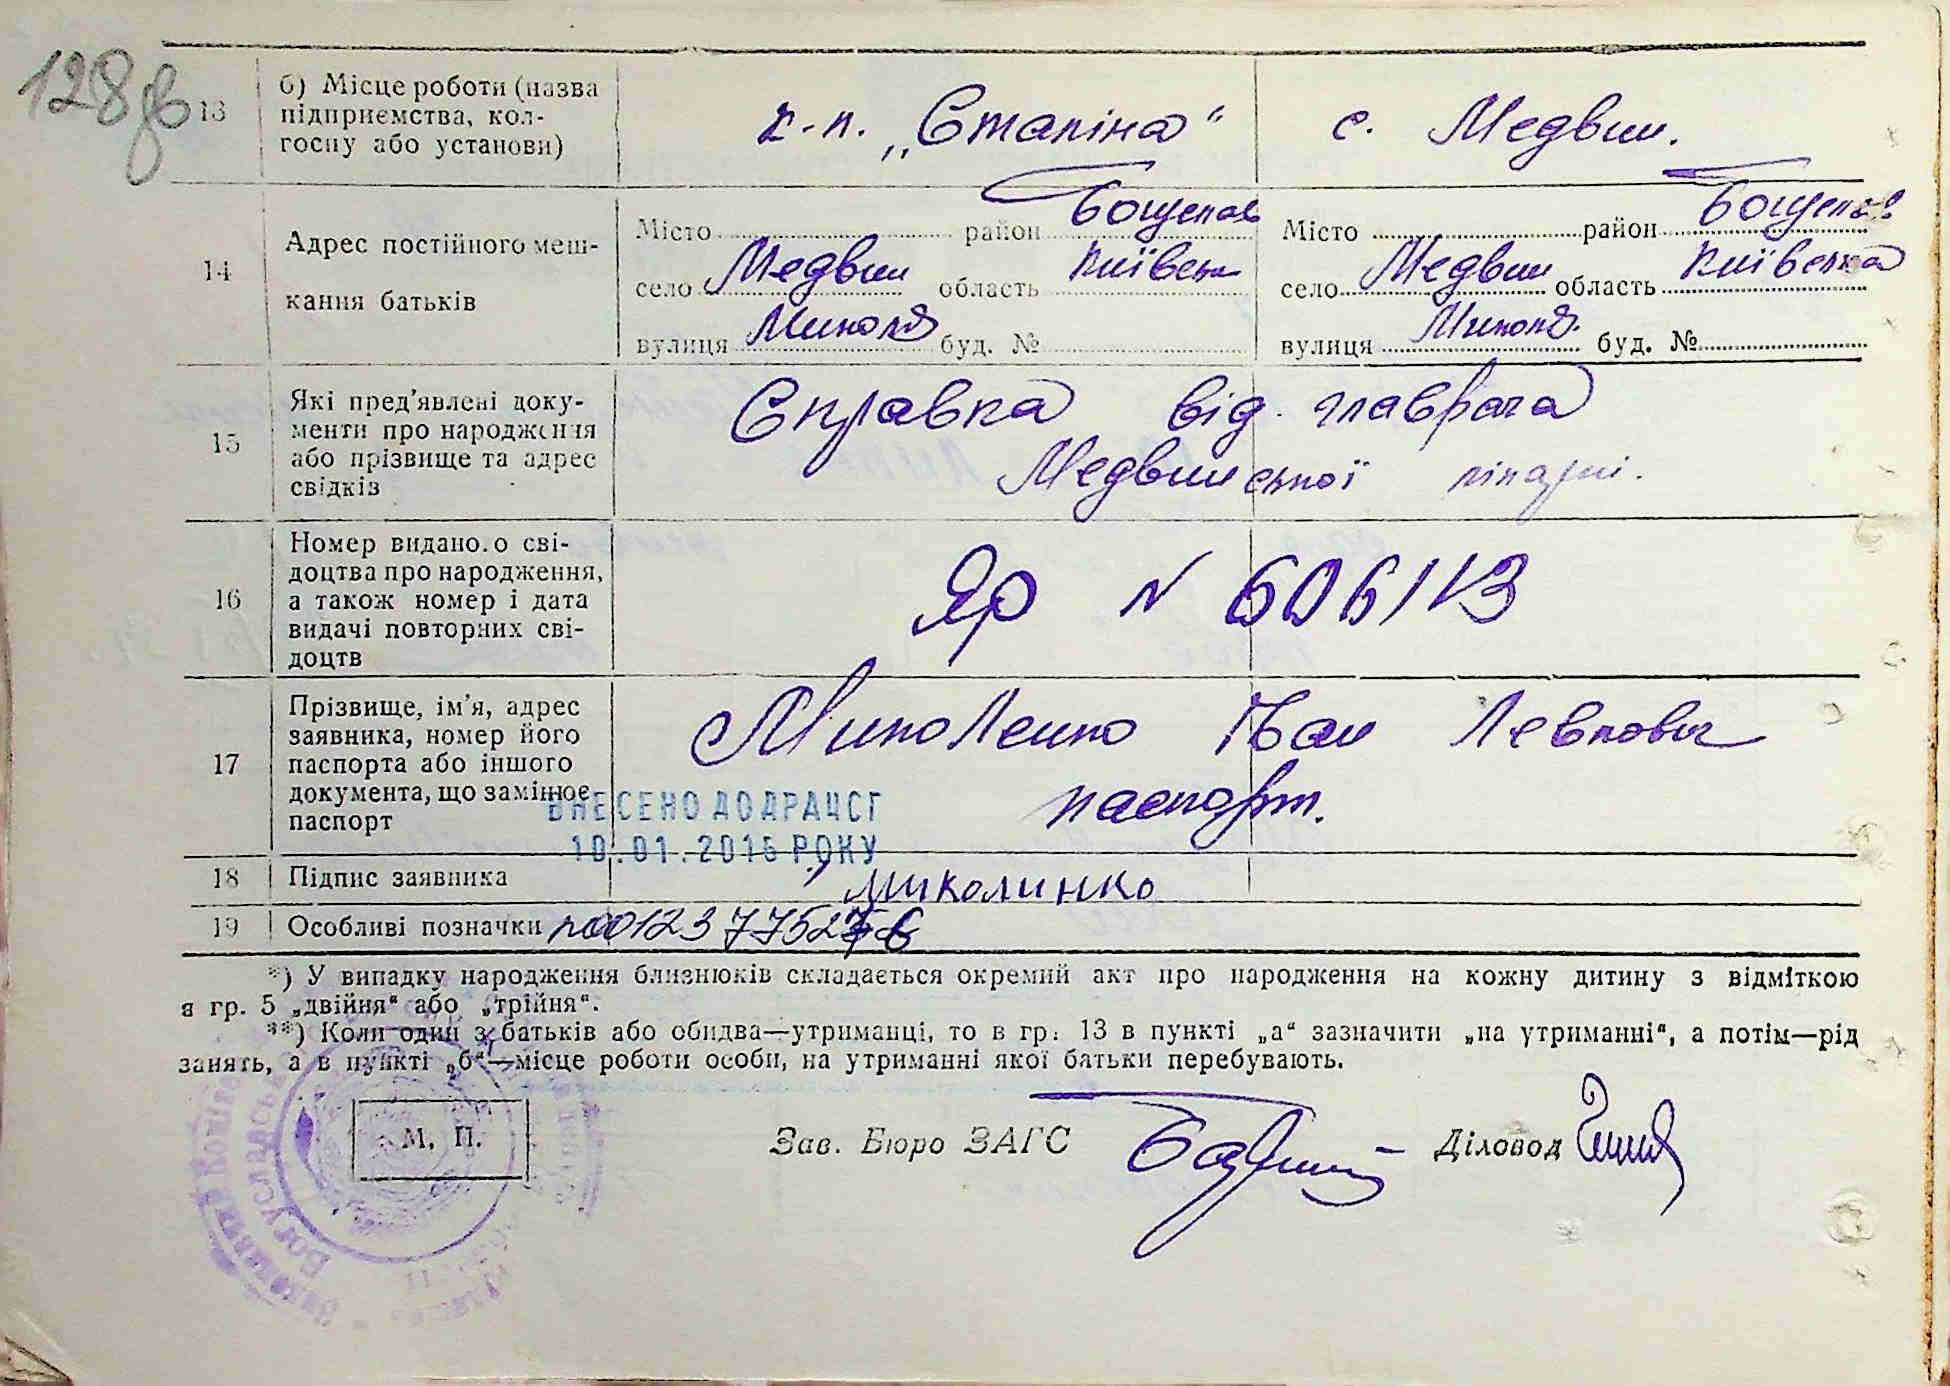 128 зв
13
б) Місце роботи (назва
підприємства, кол-
госпу або установи)
к-п. „Сталіна“ с. Медвин.
14
Адрес постійного меш-
кання батьків
Місто район Богуслав
село Медвин область Київськ
вулиця Миколи буд. №
Місто район Богуслав
село Медвин область Київська
вулиця буд. №
15
Які пред'явлені доку-
менти про народження
або прізвище та адрес
свідків
Справка від главврача
Медвинської лікарні.
16
Номер виданого сві-
доцтва про народження,
а також номер і дата
видачі повторних сві-
доцтв
ЯР N 606113
17
Прізвище, ім'я, адрес
заявника, номер його
паспорта або іншого
документа, що замінює
паспорт
Миколенко Іван Левкович
паспорт.
ВНЕСЕНО ДО ДРАЦСГ
10.01.2015 РОКУ
18 Підпис заявника Миколинко
19 Особливі позначки
*) У випадку народження близнюків складається окремий акт про народження на кожну дитину з відміткою
в гр. 5 „двійня“ або „трійня“.
**) Коли один з батьків або обидва—утриманці, то в гр. 13 в пункті „а“ зазначити „на утриманні“, а потім—рід
занять, а в пункті „б“—місце роботи особи, на утриманні якої батьки перебувають.
М. П.
Зав. Бюро ЗАГС
Діловод